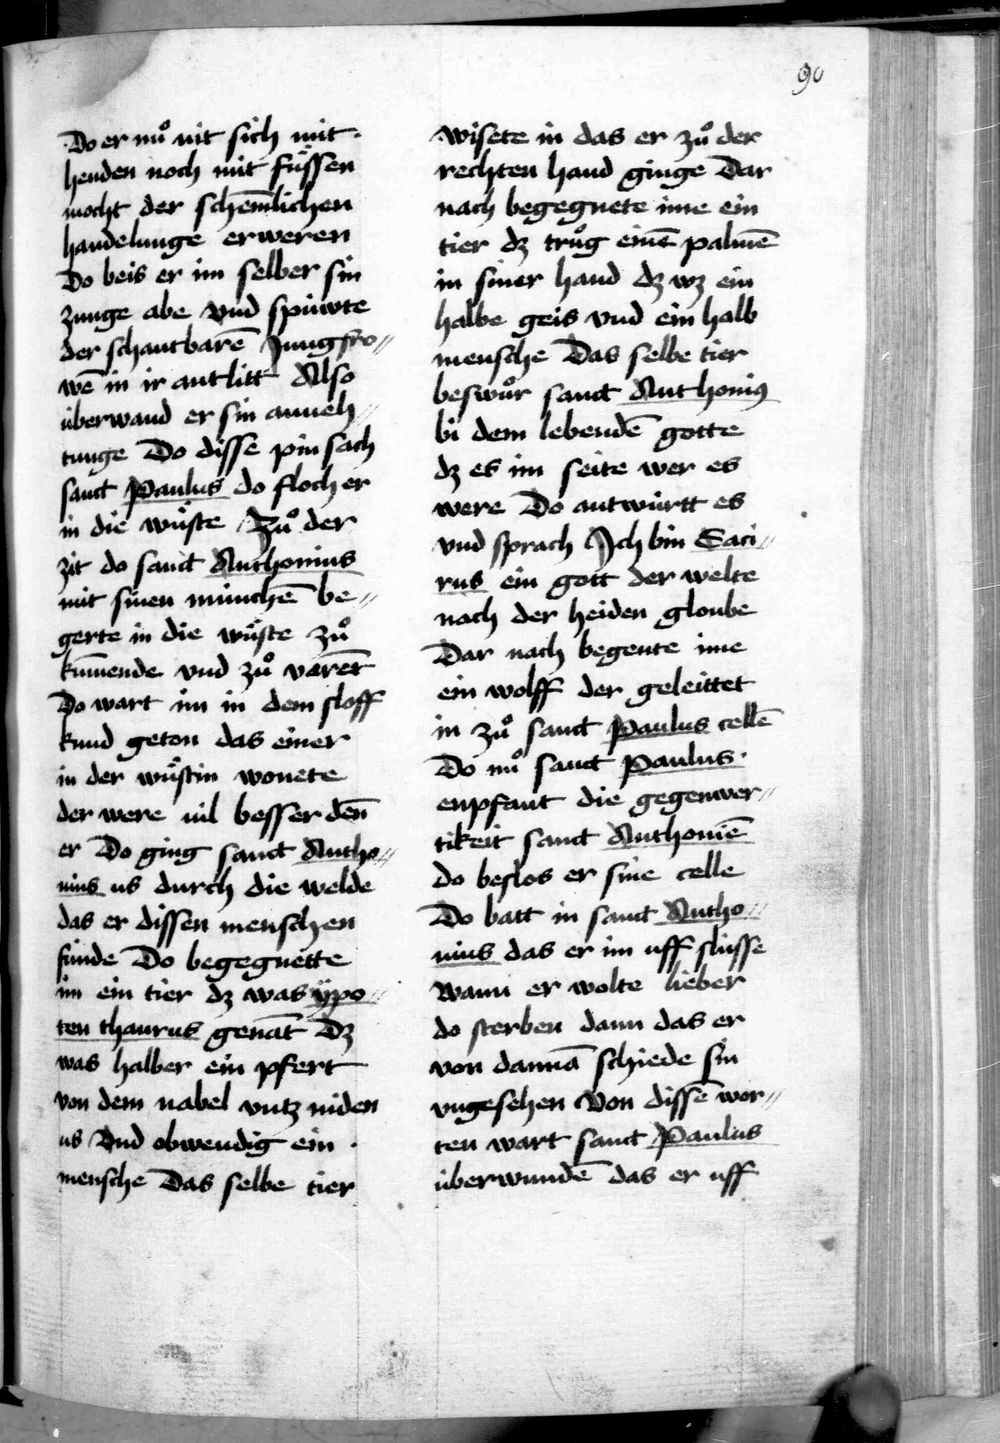 90
Do er nuͦ nit sich mit
henden noch mit fuͤssen
mocht der schem̄lichen
handelunge erweren
Do beis er im selber sin
zunge abe vnd spuwte
der schantbarē Jungfro⸗
wē in ir antlitt Also
uͤberwand er sin anneh⸗
tunge Do disse pin sach
sanct Paulus do floch er
in die wuͤste Zuͦ der
zit do sanct Anthonius
mit sinen muͤnchē be⸗
gerte in die wuͤste zuͦ
kum̄ende vnd zuͦ varēt
Do wart im in dem sloff
kund geton das einer
in der wuͤstin wonete
der were vil besser den̄
er Do ging sanct Antho⸗
nius us durch die welde
das er dissen menschen
funde Do begegnette
im ein tier dz was ÿpo⸗
ten thaurus genāt Dz
was halber ein pfert
von dem nabel vntz niden
us Vnd obwendig ein
mensche Das selbe tier
wisete in das er zuͦ der
rechten hand ginge Dar
nach begegnete ime ein
tier dz truͦg einē palmē
in siner hand dz wz ein
halbe geis vnd ein halb
mensche Das selbe tier
beswuͦr sanct Anthoniꝰ
bi dem lebendē gotte
dz es im seite wer es
were Do antwuͤrtt es
vnd sprach Ich bin Sati⸗
rus ein gott der welte
noch der heiden gloube
Dar nach begente ime
ein wolff der geleittet
in zuͦ sanct Paulus cellē
Do nuͦ sanct Paulus
enpfant die gegenwer⸗
tikeit sanct Anthoniē
do beslos er sine celle
Do batt in sanct Antho⸗
nius das er im uff slusse
Wann er wolte lieber
do sterben dann das er
von dannā schiede sin
vngesehen Von dissē wor⸗
ten wart sanct Paulus
uͤberwundē das er uff